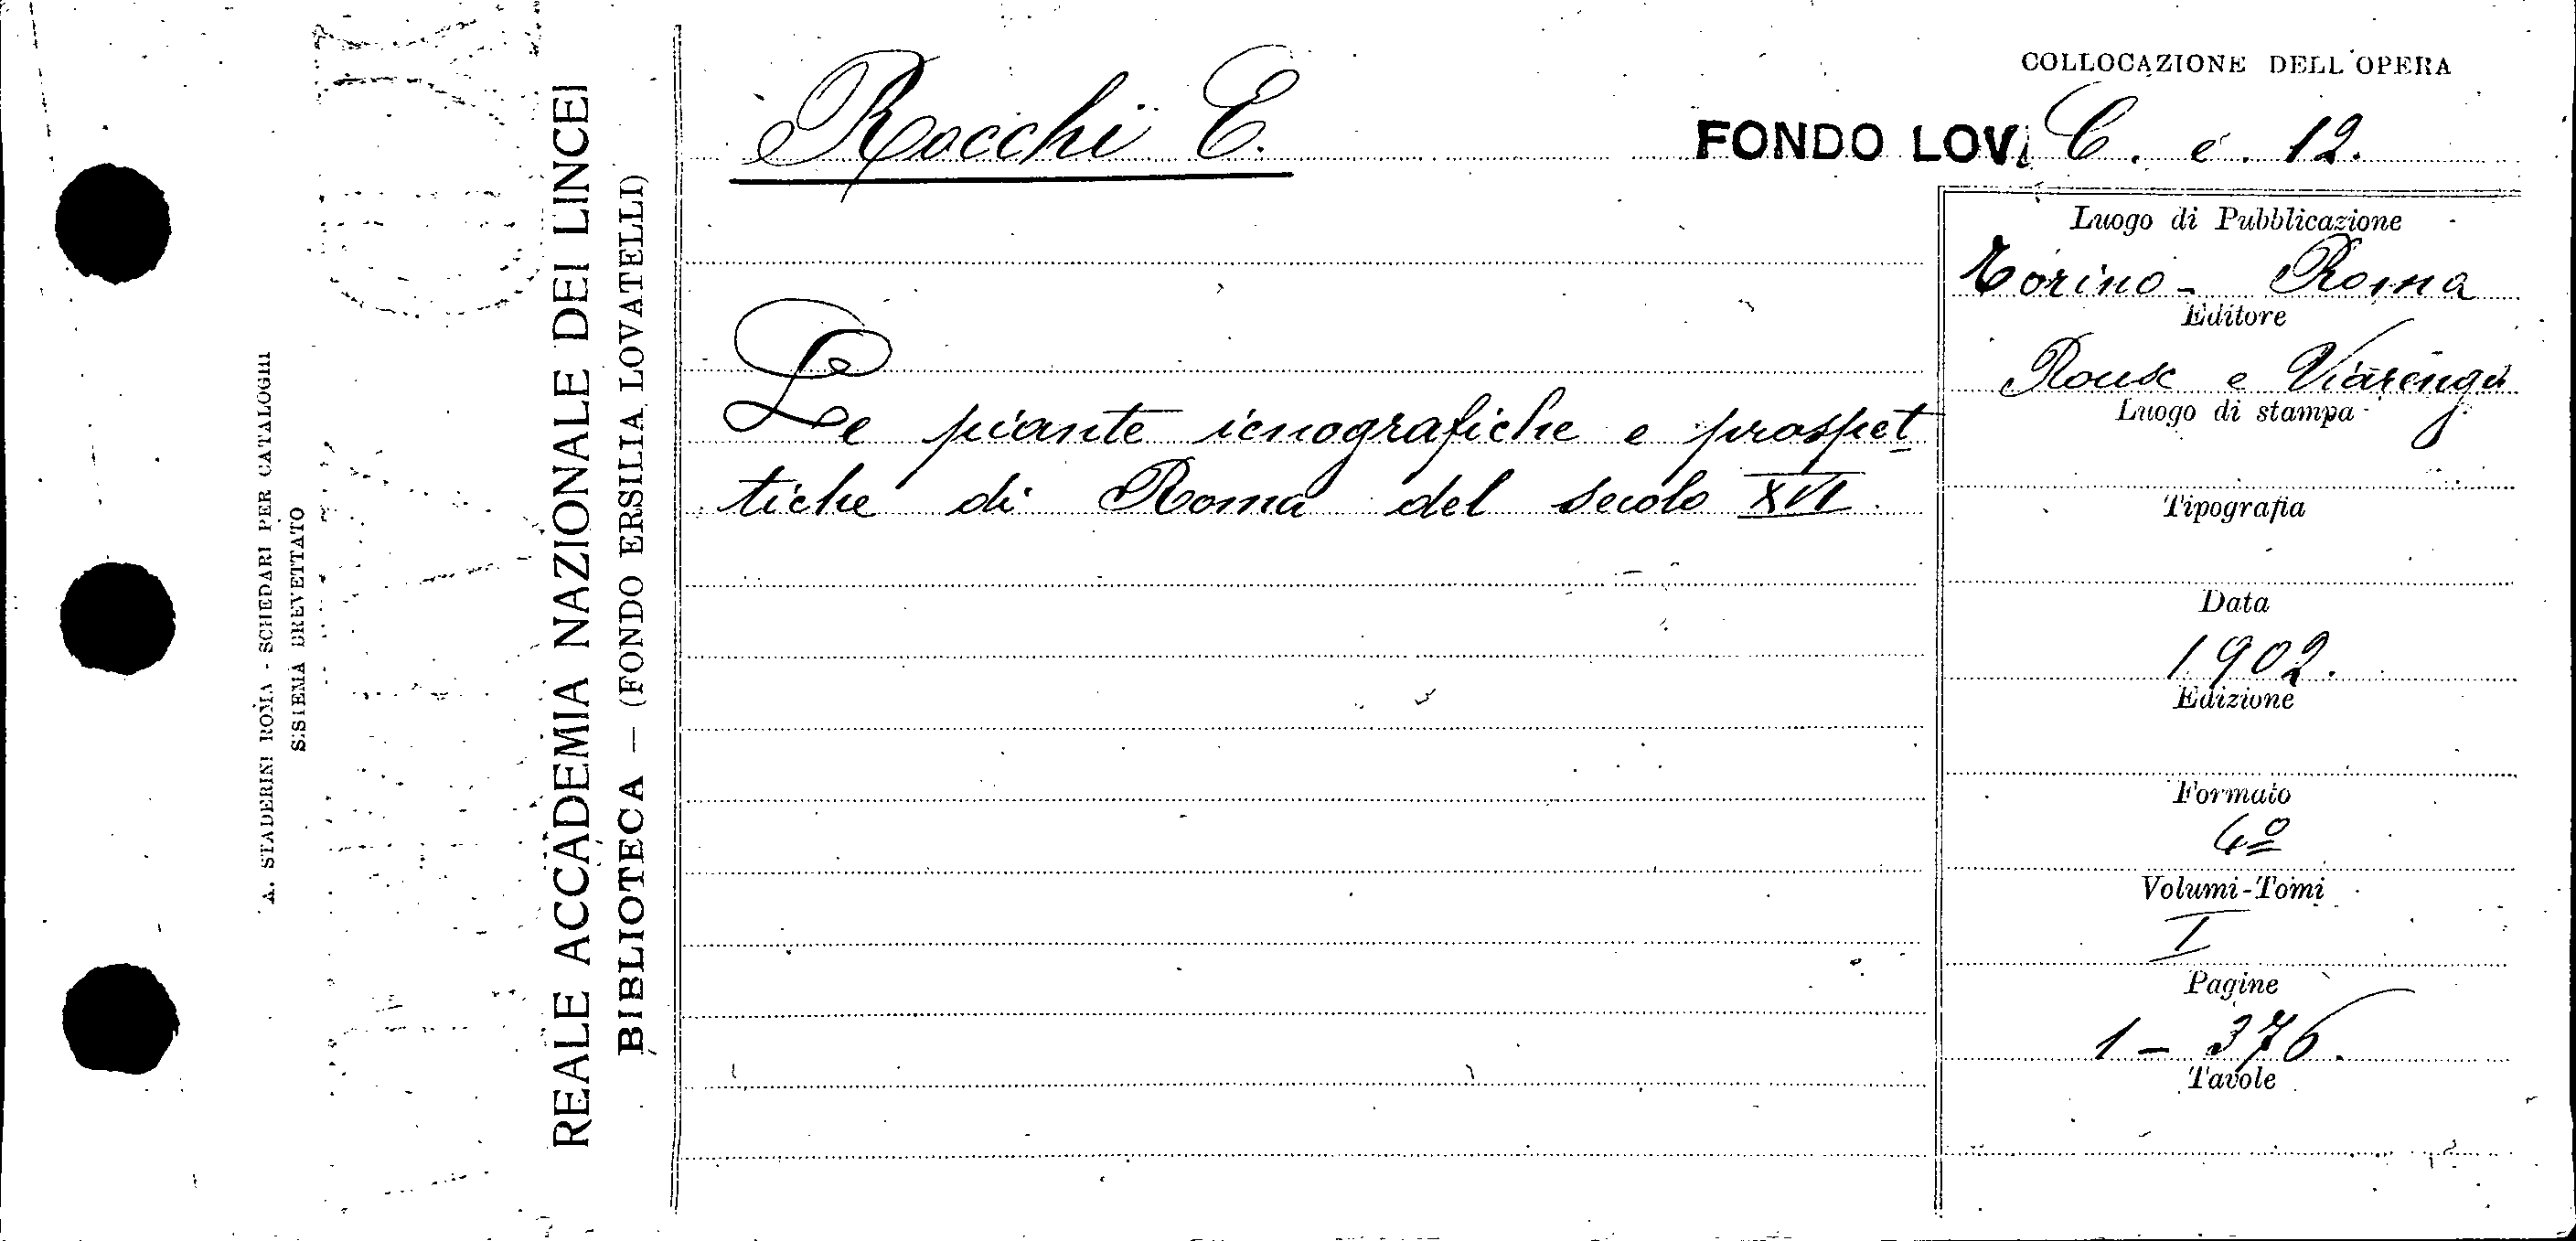 A. STADERINI ROMA - SCHEDARI PER CATALOGHI
SISTEMA BREVETTATO
REALE ACCADEMIA NAZIONALE DEI LINCEI
BIBLIOTECA — (FONDO ERSILIA LOVATELLI)
COLLOCAZIONE DELL'OPERA
Rocchi E.
FONDO LOV. C. e. 12.
Le piante icnografiche e prospet
tiche di Roma del secolo XVI.
Luogo di Pubblicazione
Torino - Roma
Editore
Roux e Viarengo
Luogo di stampa
Tipografia
Data
1902.
Edizione
Formato
4º
Volumi-Tomi
I
Pagine
1 - 376.
Tavole